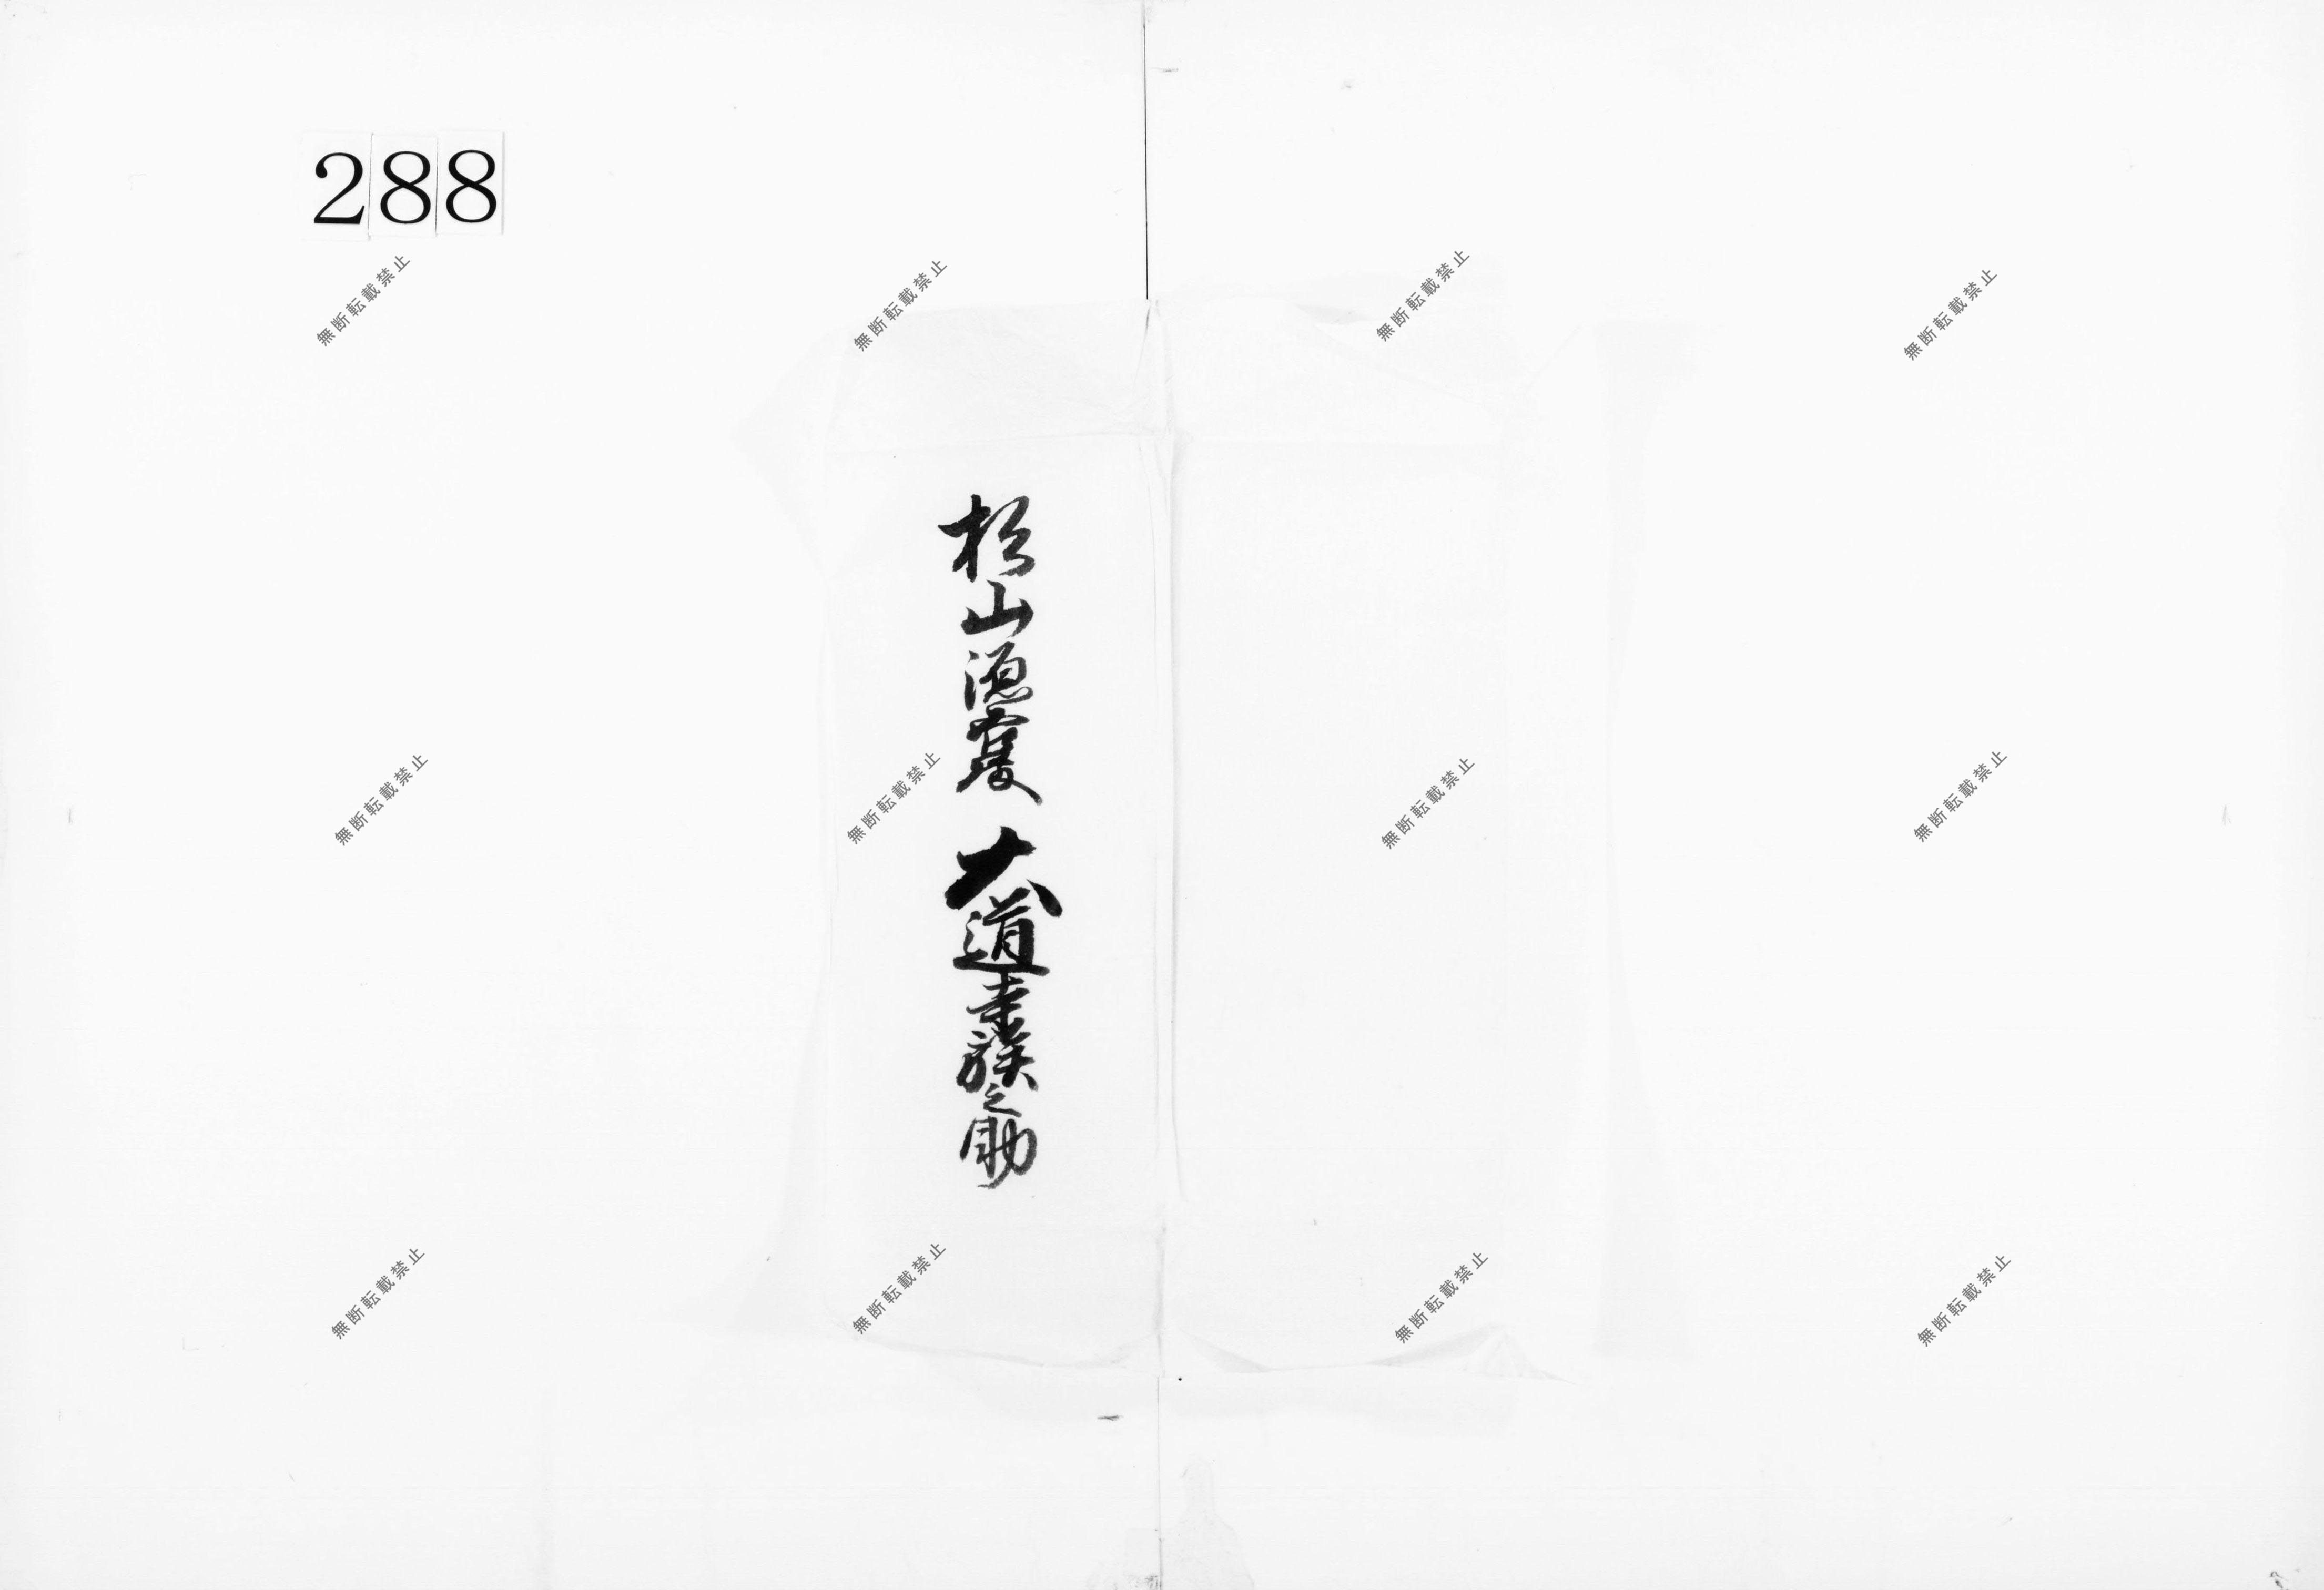 288
杉山
大道寺族之助
無断転載禁止
無断転載禁止
無断転載禁止
無断転載禁止
無断転載禁止
無断転載禁止
無断転載禁止
無断転載禁止
無断転載禁止
無断転載禁止
無断転載禁止
無断転載禁止